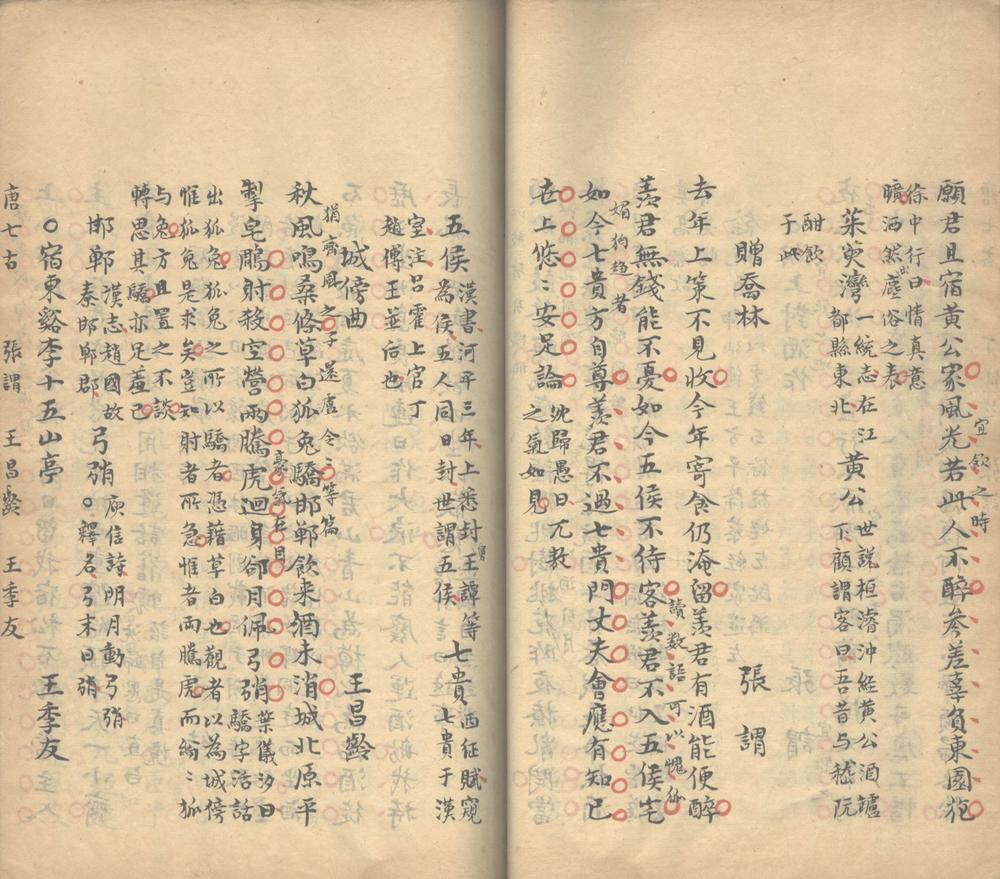 願君且宿黄公家風光若此人不醉參差辜負東園花
宜飲之時
徐中行曰情真意
曠洒然出塵俗之表
茱萸灣一統志在江
都縣東北
黄公世説桓濬沖經黄公酒罏
下顧謂客曰吾昔与嵇阮
酣飲
于此
贈喬林 張謂
去年上策不見收今年寄食仍淹留羡君有酒能便醉
羡君無錢能不憂如今五侯不待客羡君不入五侯宅
讀数語可以愧
如今七貴方自尊羡君不過七貴門丈夫會應有知己
媚狗趋者
世上悠〻安足論
沈歸愚曰兀敖
之氣如見
五侯漢書河平三年上悉封王譚等
為侯五人同日封世謂五侯
七貴西征賦窺
七貴于漢
室注吕霍上官丁
趙傅王並后也
城傍曲 王昌齡
猶齊風之子還盧令〻等篇
秋風鳴桑條草白狐兔驕邯鄲飲来酒未消城北原平
掣皂鵰射殺空營兩騰虎迴身卻月佩弓弰
豪氣在目
葉儀汐曰
驕字活話
出狐兔狐兔之所以驕者憑藉草白也觀者以為城傍
惟狐兔是求矣豈知射者所急惟者兩騰虎而絢〻狐
与兔方且置之不談
轉思其驕亦足羞已
邯鄲漢志趙國故
秦邯鄲郡
弓弰庾信詩明月動弓弰
釋名弓末曰弰
宿東谿李十五山亭 王季友
唐七古 張謂 王昌齡 王季友